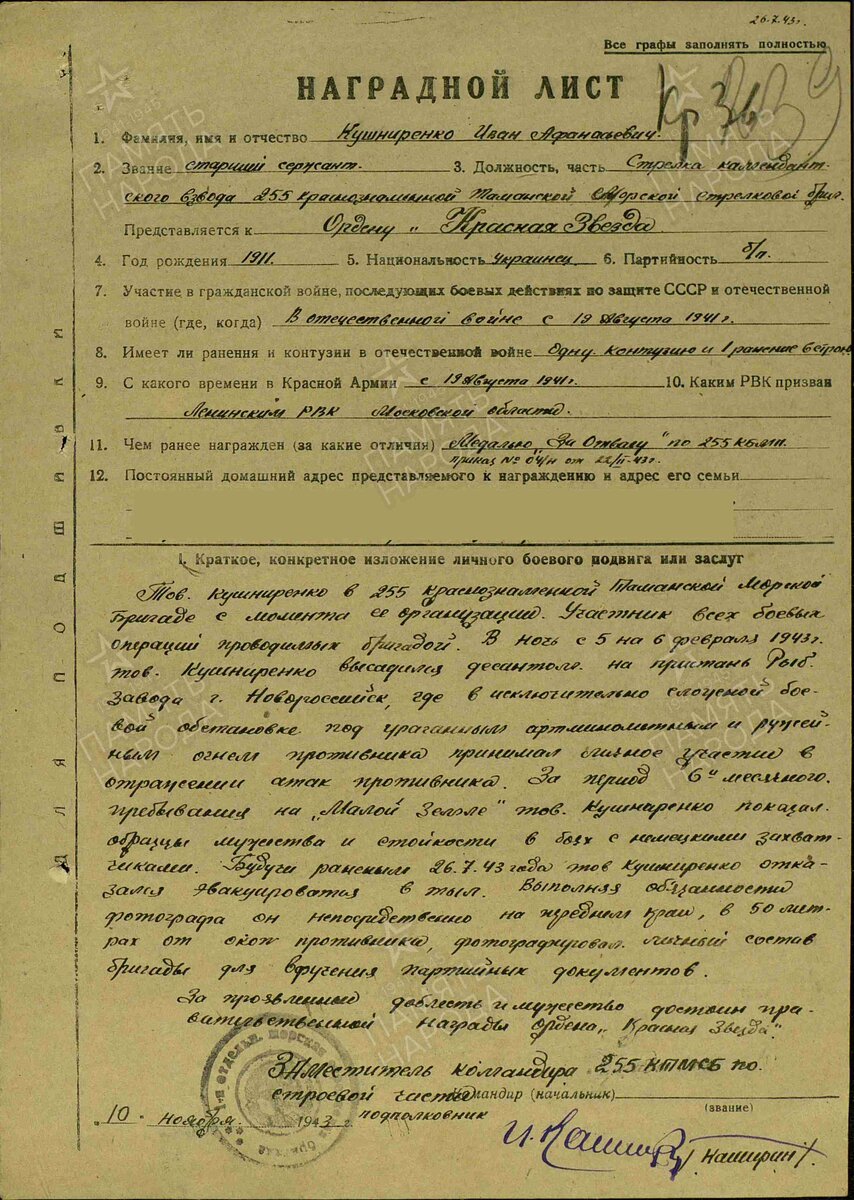 26.7.43г.
Все графы заполнять полностью
НАГРАДНОЙ ЛИСТ
1. Фамилия, имя и отчество Кушниренко Иван Афанасьевич.
2. Звание старший сержант. 3. Должность, часть Стрелка коммендант-
ского взвода 255 краснознаменной Таманской Морской стрелковой бриг.
Представляется к Ордену „Красная Звезда
4. Год рождения 1911. 5. Национальность Украинец 6. Партийность б/п.
7. Участие в гражданской войне, последующих боевых действиях по защите СССР и отечественной
войне (где, когда) В отечественной войне с 19 Августа 1941 г.
8. Имеет ли ранения и контузии в отечественной войне Одну контузию и 1 ранение
9. С какого времени в Красной Армии с 19 Августа 1941г. 10. Каким РВК призван
Ленинским РВК Московской области.
11. Чем ранее награжден (за какие отличия) Медалью „За Отвагу" по 255 КБМП.
приказ № 04/н от 22/II-43г.
12. Постоянный домашний адрес представляемого к награждению и адрес его семьи
1. Краткое, конкретное изложение личного боевого подвига или заслуг
Тов. Кушниренко в 255 краснознаменной Таманской Морской
Бригаде с момента ее организации. Участник всех боевых
операций проводимых бригадой. В ночь с 5 на 6 февраля 1943г.
тов. Кушниренко высадился десантом на пристань Рыб.
завода г. Новороссийск, где в исключительно сложной бое-
вой обстановке под ураганным артминометным и ружей-
ным огнем противника принимал личное участие в
отражении атак противника. За период 6и месячного.
пребывания на „Малой Земле" тов. Кушнаренко показал
образцы мужества и стойкости в боях с немецкими захват-
чиками. Будучи раненым 26.7.43 года тов Кушниренко отка-
зался эвакуироватся в тыл. Выполняя обязанности
фотографа он непосредственно на переднем крае, в 50 мет-
рах от окоп противника, фотографировал личный состав
бригады для вручения партийных документов.
За проявленные доблесть и мужество достоин пра-
вительственной награды ордена „Красная Звезда".
Заместитель командира 255 КТМСБ по
строевой части Командир (начальник)
(звание)
10. ноября 1943 г. подполковник
/Каширин/
Для подшивки
ПАМЯТЬ НАРОДА